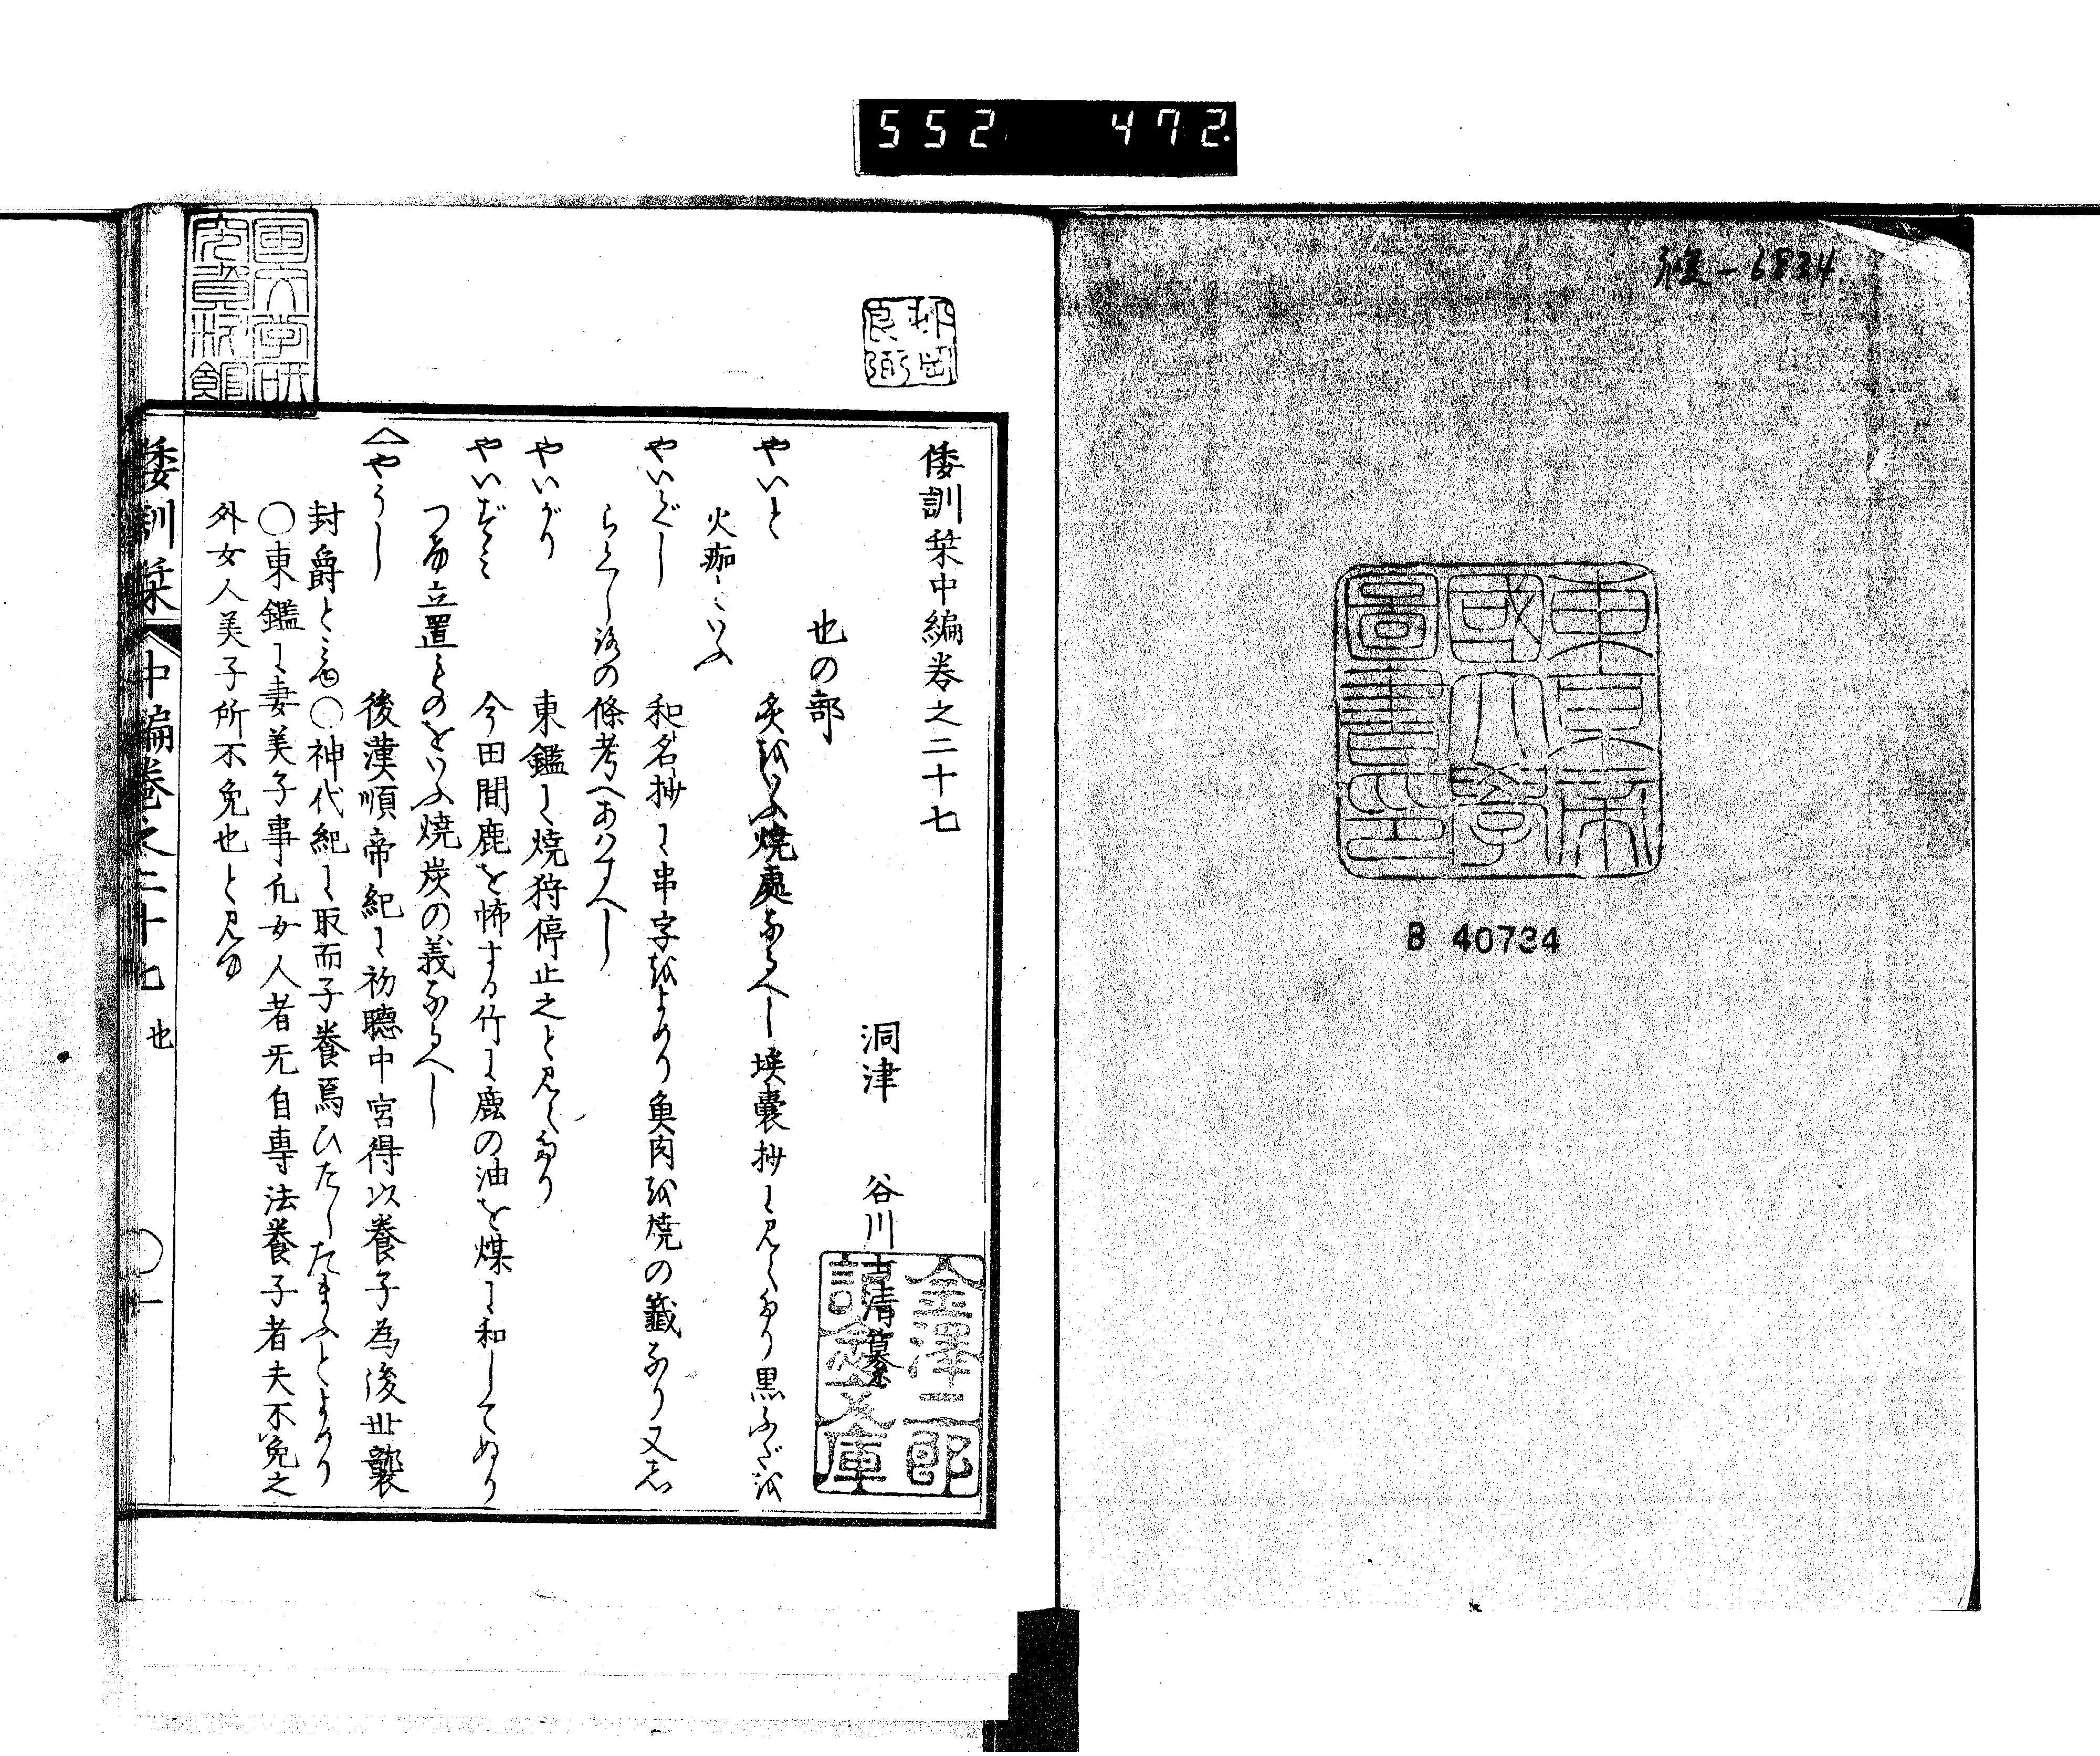 552 472
6834
東京帝國大學圖書印
B 40734
倭訓栞中編卷之二十七
洞津 谷川士清纂
也の部
やいと 灸をいふ燒處なるへし埃囊抄に見えたり黒ふだを
火痂といふ
やいぐし 和名抄に串字をよめり魚肉を燒の籤なり又志
らくし路の條考へあはすへし
やいがり 東鑑に燒狩停止之と見えたり
やいずミ 今田間鹿を怖する竹に鹿の油を煤に和してぬり
つけ立置ものをいふ燒炭の義なるへし
やうし 後漢順帝紀に初聽中宮得以養子為後世襲
封爵と見ゆ○神代紀に取而子養焉ひたしたまふとよめり
○東鑑に妻美子事凢女人者无自專法養子者夫不免之
外女人美子所不免也と見ゆ
倭訓栞 中編卷之二十七 也 ○一
金澤
文庫
國文学研究資料館